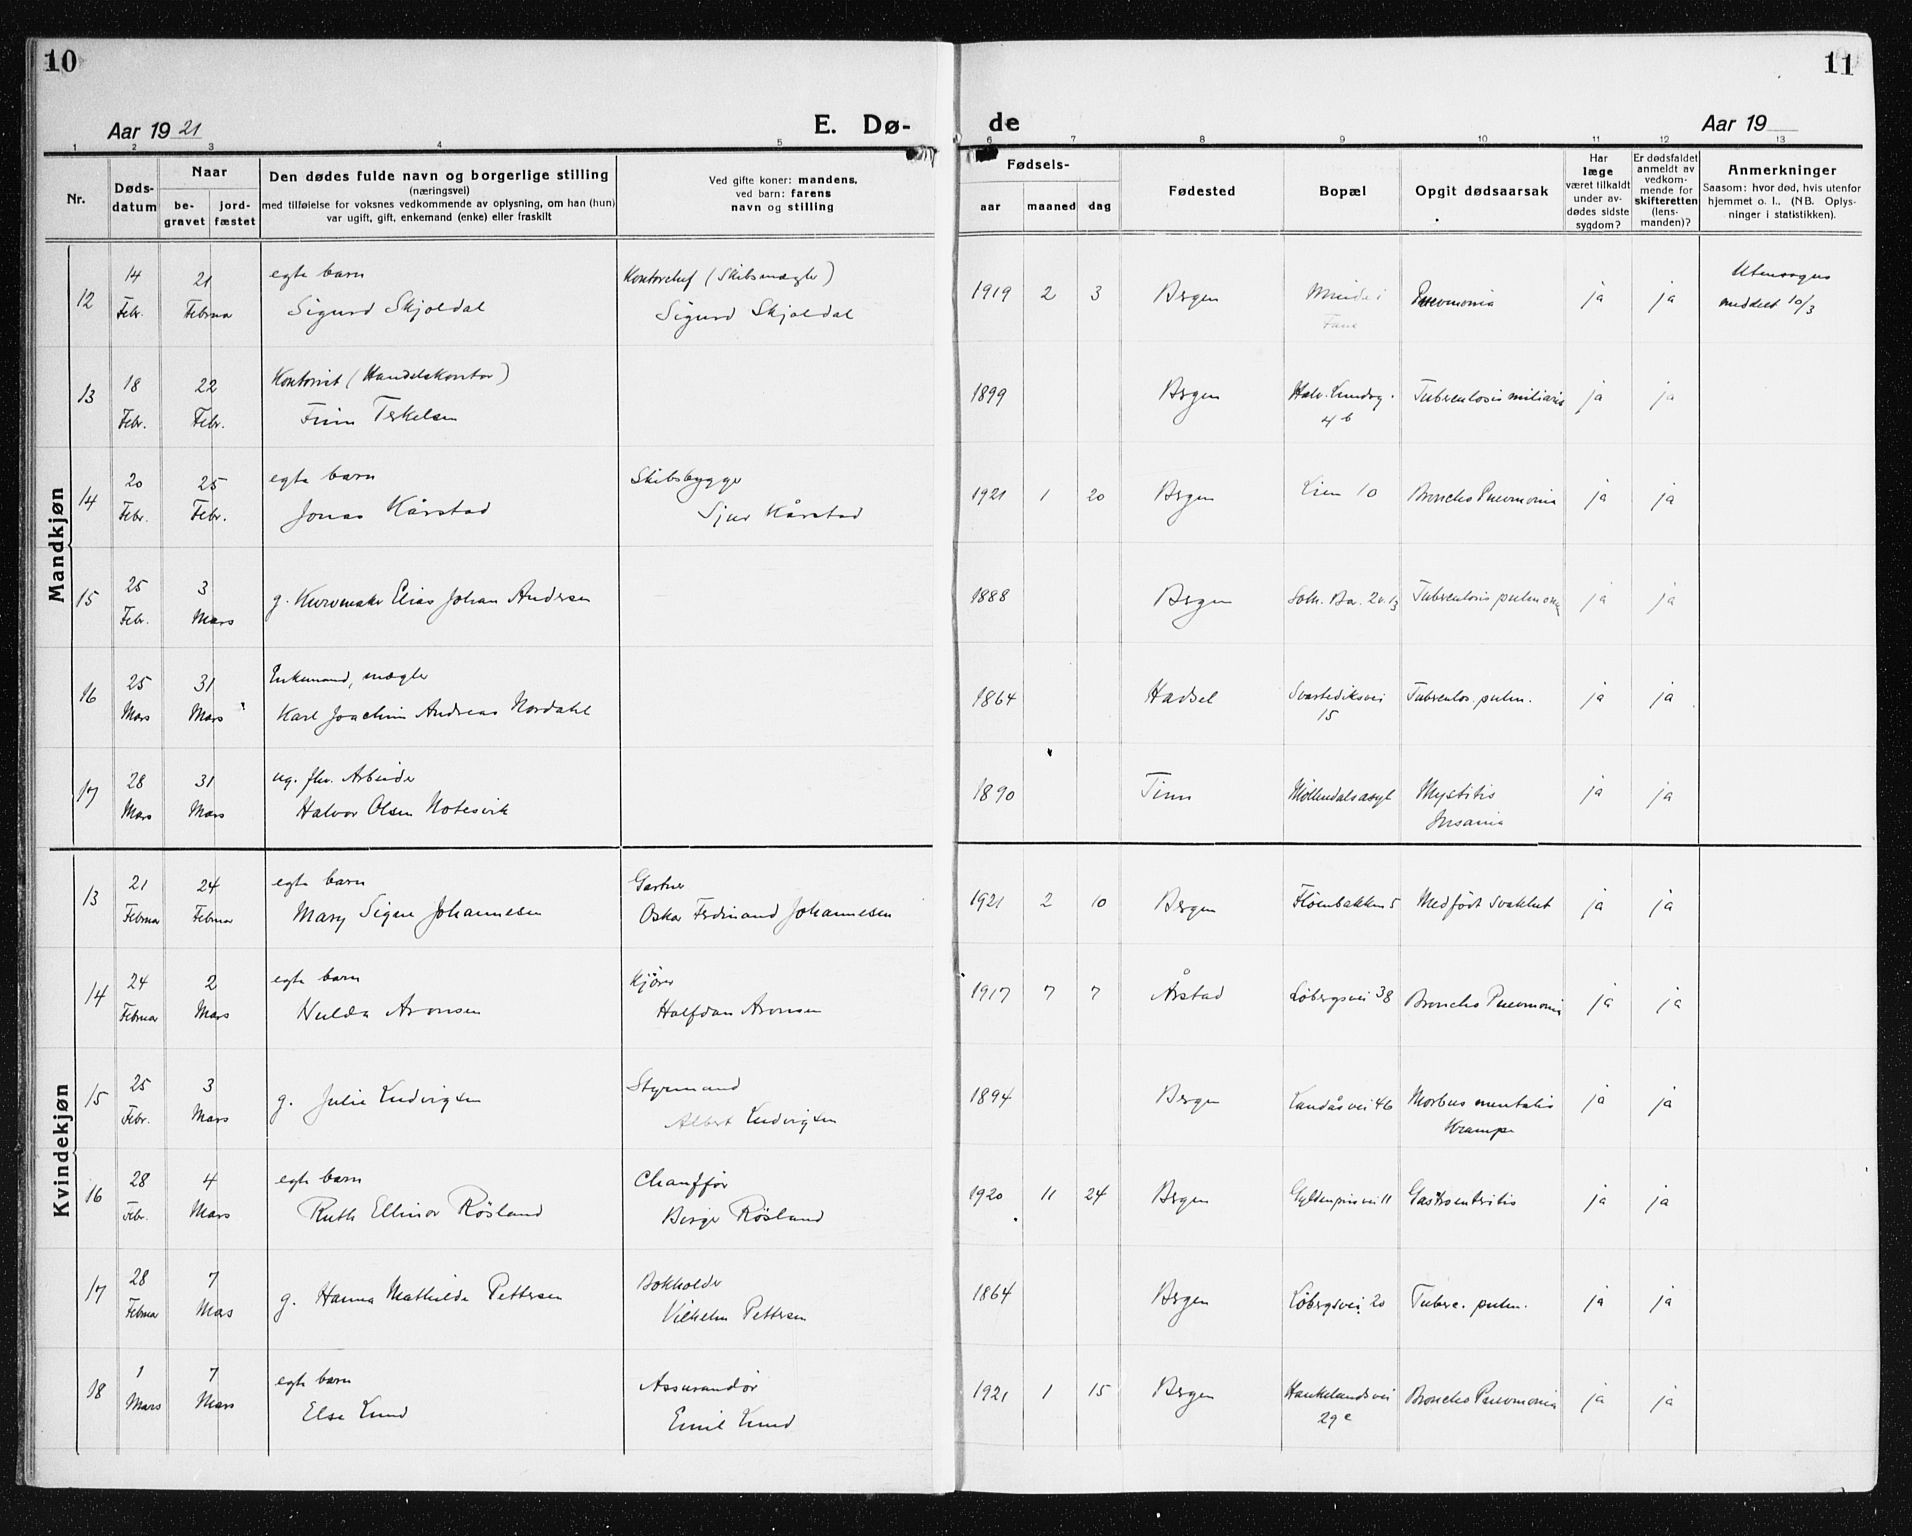 10
11
Aar 1921
E. Dø-
de
Aar 19
1 2 3 4 5 6 7 8 9 10 11 12 13
Nr.
Døds-
datum
Naar
be-
gravet
jord-
fæstet
Den dødes fulde navn og borgerlige stilling
(næringsvei)
med tilføielse for voksnes vedkommende av oplysning, om han (hun)
var ugift, gift, enkemand (enke) eller fraskilt
Ved gifte koner: mandens,
ved barn: farens
navn og stilling
Fødsels-
aar maaned dag
Fødested
Bopæl
Opgit dødsaarsak
Har
læge
været tilkaldt
under av-
dødes sidste
sygdom?
Er dødsfaldet
anmeldt av
vedkom-
mende for
skifteretten
(lens-
manden)?
Anmerkninger
Saasom: hvor død, hvis utenfor
hjemmet o. l., (NB. Oplys-
ninger i statistikken).
Mandkjøn
12 14 Febr. 21 Februa
egte barn
Sigurd Skjoldal
Kontorchef (Skibsmægler)
Sigurd Skjoldal
1919 2 3 Bergen Minde i
Fane
Pneumonia ja ja
meddelt 10/3
13 18 Febr. 22 Febr.
Kontorist (Handelskontor)
Finn Terkelsen
1899 Bergen
4 b
Tuberculosis miliaris ja ja
14 20 Febr. 25 Febr.
egte barn
Jonas Kårstad
Skibsbygger
Sjur Kårstad
1921 1 20 Bergen Lien 10 Broncho Pneumonia ja ja
15 25 Febr. 3 Mars
g. Kurvmaker Elias Johan Andersen
1888 Bergen Tuberculosis pulmonia ja ja
16 25 Mars 31 Mars
Enkemand, mægler
Karl Joachim Andreas Nordahl
1864 Hadsel Svartediksvei
15
Tuberculos. pulm. ja ja
17 28 Mars 31 Mars
ug. fhv. Arbeider
Halvor Olsen Notesvik
1890 Tinn Møllendalsasyl Mystitis
Insania
ja ja
Kvindekjøn
13 21 Februar 24 Februar
egte barn
Mary Signe Johannesen
Gartner
Oskar Ferdinand Johannesen
1921 2 10 Bergen Fløenbakken 5 Medfødt svakhet ja ja
14 24 Februar 2 Mars
egte barn
Hulda Aronsen
Kjører
Halfdan Aronsen
1917 7 7 Årstad Løbergsvei 38 Broncho Pneumonia ja ja
15 25 Febr. 3 Mars
g. Julie Ludvigsen
Styrmand
Albert Ludvigsen
1894 Bergen Landåsvei 46 Morbus mentalis
Krampe
ja ja
16 28 Febr. 4 Mars
egte barn
Ruth Ellinor Røsland
Chauffør
Birger Røsland
1920 11 24 Bergen Gyldenprisvei 11 Gastroenteritis ja ja
17 28 Februar 7 Mars
g. Hanna Mathilde Pettersen
Bokholder
Vilhelm Pettersen
1864 Bergen Løbergsvei 20 Tuberc. pulm. ja ja
18 1 Mars 7 Mars
egte barn
Else Lund
Assurandør
Emil Lund
1921 1 15 Bergen Haukelandsvei
29 c
Broncho Pneumonia ja ja